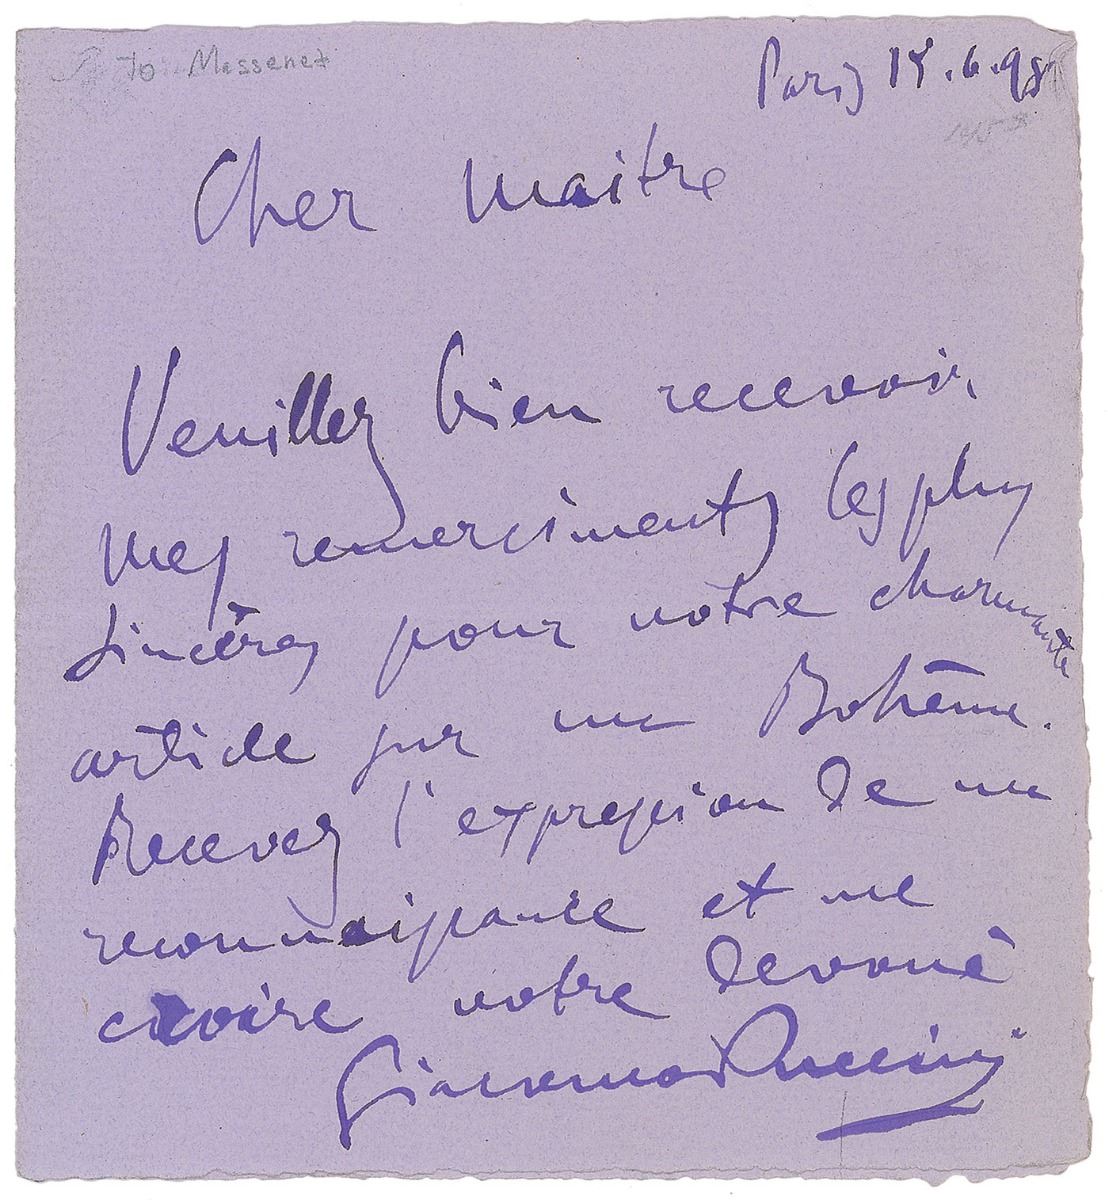 To Massenet
Paris 15.6.98
Cher maitre
Veuillez bien recevoir
mes remerciments les plus
sincères pour votre charmante
article sur ma Bohême.
Recevez l'expression de ma
reconnaissance et me
croire votre devoué
Giacomo Puccini